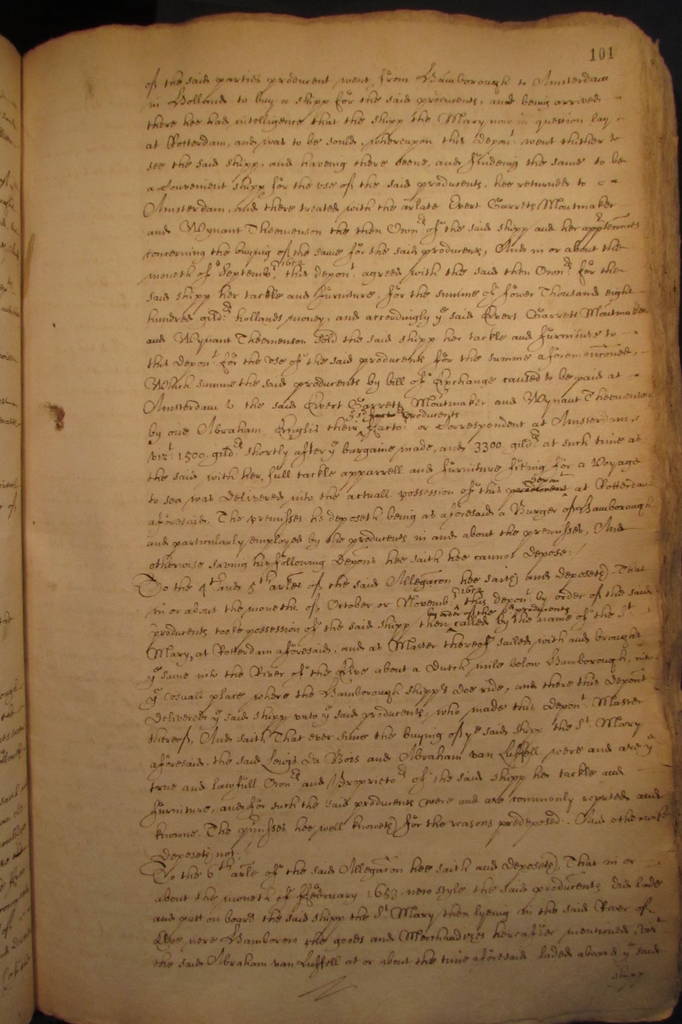 101
of the said parties producent went from Hamborough to Amsterdam
in Holland to buy a shipp for the said producents, and being arrived
there hee had intelligence that the shipp the Mary now in question lay
at Rotterdam, and was to be sould, whereupon this depon.t went thither to
see the said shipp, and haveing there seene, and findeing the same to be
a convenient shipp for the use of the said producents, hee returned to
Amsterdam, and there treated with the arlate Evert Garrets Moutmaker
and Wynant Theunenson the then Own.rs of the said shipp and her appurtenances
concerning the buying of the same for the said producents, And in or about the
moneth of Septemb.r 1652 this depon.t agreed with the said then Own.rs for the
said shipp her tackle and furniture, for the summe of fower Thousand eight
hundred gild.rs hollands money, and accordingly y.e said Evert Garrett Moutmaker
and Wynant Theunenson sold the said shipp her tackle and furniture to
this depon.t for the use of the said producents for the summe aforementioned,
Which summe the said producents by bill of Exchange caused to be paid at
Amsterdam to the said Evert Garrett Moutmaker and Wynant Theunenson
by one Abraham their the s.d producents Facto.r or Correspondent at Amsterdam,
viz.t 1500 gild.rs shortly after y.e bargaine made, and 3300 gild.rs at such time as
the said with her full tackle apparrell and furniture fitting for a Voyage
to sea was delivered into the actuall possession of this depon.t at Rotterdam
aforesaid. The premisses he deposeth being as aforesaid a Burger of Hamborough
and particularly employed by the producents in and about the premisses, And
otherwise saving his following depons hee saith hee cannot depose./
To the 4.th and 5.th arles of the said Allegacon hee saith and deposeth, That
in or about the moneth of October or Novemb.r 1652 this depon.t by order of the said
producents tooke possession of the said shipp then by order of the s.d producents called by the name of the S.t
Mary, at Rotterdam aforesaid, and as Master thereof sailed with and brought
y.e same into the River of the Elve about a Dutch mile below Hamborough,
y.e usuall place where the Hamborough shipps doe ride, and there this depon.t
delivered y.e said shipp unto y.e said producents, who made this depon.t Master
thereof, And saith That ever since the buying of y.e said shipp the S.t Mary
aforesaid, the said Lewis Da Bois and Abraham van Luffell were and are y.e
true and lawfull Own.rs and Proprieto.rs of the said shipp her tackle and
furniture, and for such the said producents were and are commonly reputed and
knowne. The p.rmisses hee well knoweth for the reasons predeposed. And otherwise
deposeth not.
To the 6.th arle of the said Allegacon hee saith and deposeth, That in or
about the moneth of February 1653 new style the said producents did lade
and putt on board the said shipp the S.t Mary, then lyeing in the said River of
Elve, nere Hamboro the goods and Merchandizes hereafter mentioned, viz.t
the said Abraham van Luffell at or about the time aforesaid laded aboard y.e said
shipp